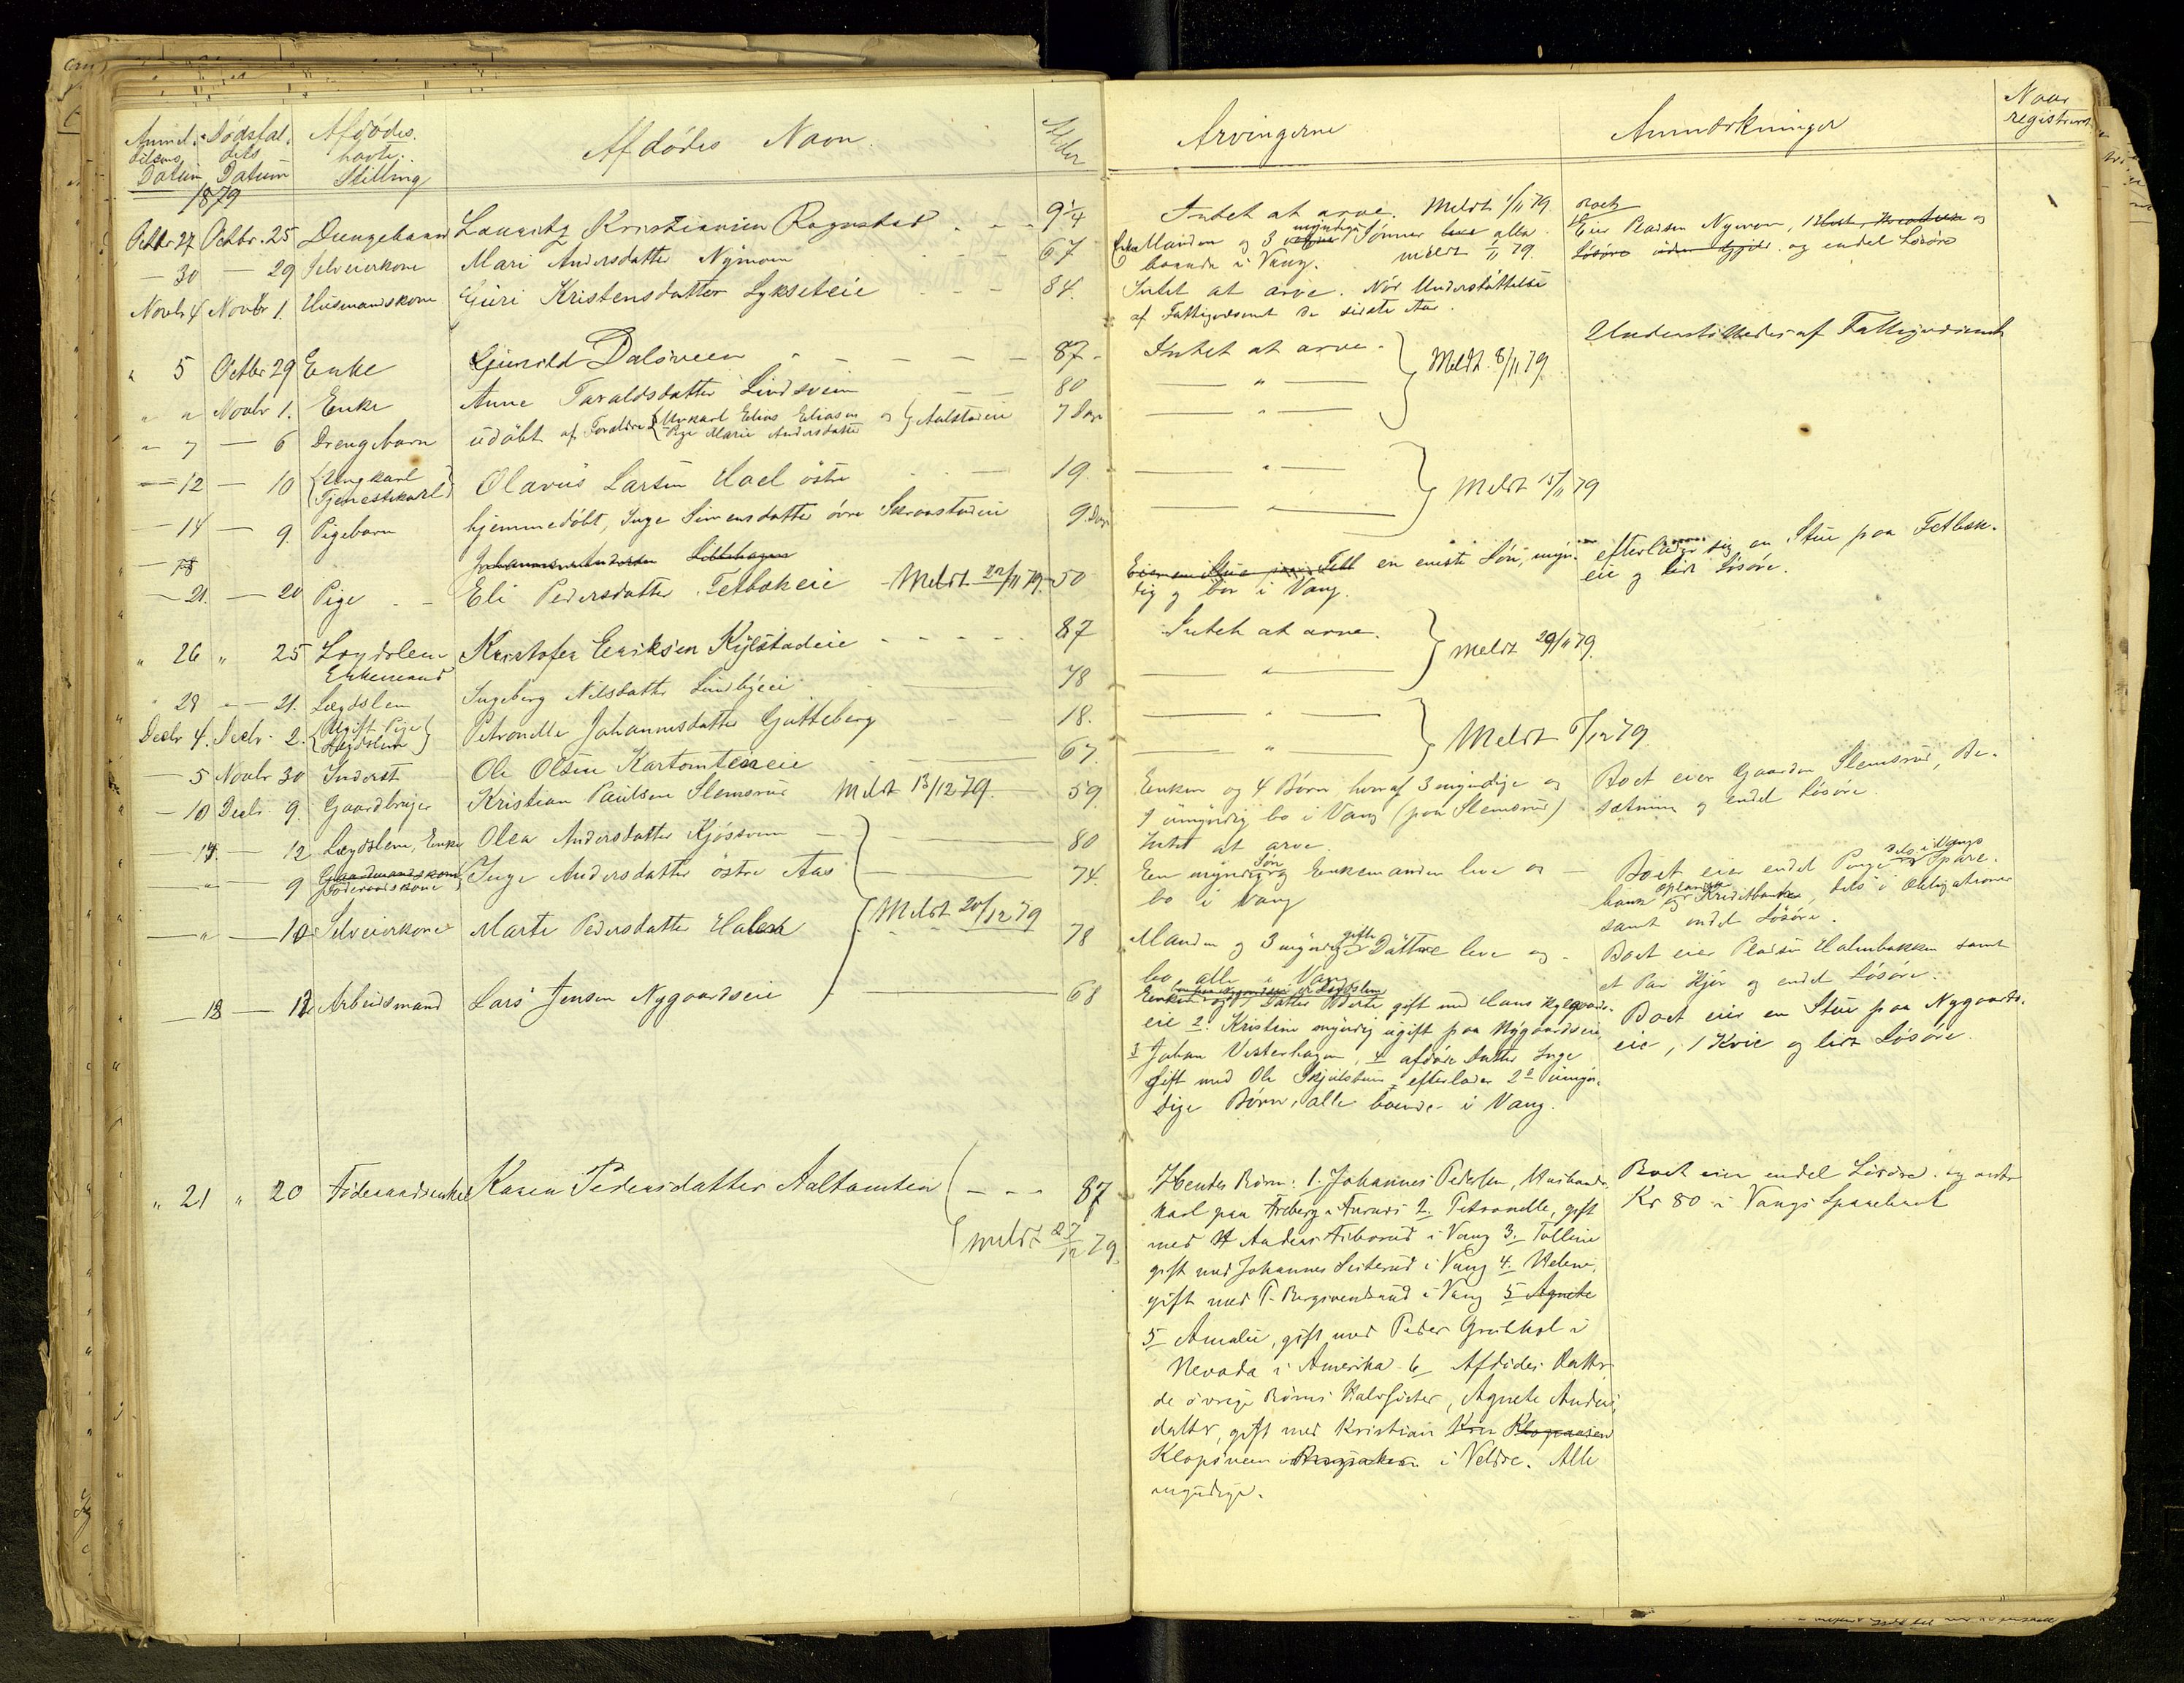 Anmel- Dødsfal- Afdødes
delsens dets havte
Datum Datum Stilling Afdødes Navn. Alder Arvingerne Anmærkninger Naar registreret
1879
Octbr 27. Octbr. 25 Drengebarn Lauritz Kristiansen Rognstad 9 1/4 Intet at arve. Meldt 1/11 79.
— 30 — 29 Selveierkone Mari Andersdatter Nymoen 67 Manden og 3 myndige Sønner alle Boet Eier Pladsen Nymoen, og
boende i Vang. meldt 1/11 79. Løsøre uden Gjæld og endel Løsøre
Novbr 4 Novbr 1. Husmandskone Guri Kristensdatter Lykseteie 84. Intet at arve. Nöd Understøttelse
af Fattigvæsenet de sidste Aar.
" 5 Octbr 29 Enke Gunild Dalsveen 87 Intet at arve. Meldt 8/11 79. Understöttedes af Fattigvæsenet
" " Novbr 1. Enke Anne Taraldsdatter Lindsveen 80 — " —
" 7 — 6 Drengebarn udöbt af Forældre Ungkarl Elias Eliasen og Pige Marie Andersdatter Aalstadeie 7 Dage — " —
— 12 — 10 Ungkarl Tjenestekarl Olavus Larsen Hoel östre 19. — " — Meldt 15/11 79
— 14 — 9 Pigebarn hjemmedöbt, Inge Simensdatter övre 9 Dage — " —
— 18 Johannes Andersen Lillehagen
— 21. — 20 Pige Eli Pedersdatter Fetbakeie Meldt 22/11 79. 50 en eneste Sön, myn- efterlader sig en Stue paa Fetbak-
dig og bor i Vang. eie og lidt Løsøre.
" 26 " 25 Lægdslem Enkemand Kristofer Eriksen Kylstadeie 87 Intet at arve. meldt 29/11 79.
" 28 — 21. Lægdslem Ingeborg Nilsdatter Lindbyeie 78 — " —
Decbr 4. Decbr. 2. Ugift Pige Lægdslem Petronelle Johannesdatter Gutteberg 18. — " — Meldt 6/12 79
— 5 Novbr 30 Inderst Ole Olsen Kartomteneie 67. — " —
— 10 Decbr. 9. Gaardbruger Kristian Paulsen Slemsrud Meldt 13/12 79. 59 Enken og 4 Børn hvoraf 3 myndige og Boet eier Gaarden Slemsrud, Be-
1 umyndig bo i Vang (paa Slemsrud) sætning og endel Løsøre.
— 14. — 12 Lægdslem, Enke Olea Andersdatter Kjösveen 80 Intet at arve.
— " — 9 Gaardmandskone Föderaadskone Inge Andersdatter östre Aas 74. Een myndig Sön og Enkemanden leve og Boet eier endel Penge dels i Vangs Spare-
bo i Vang bank og Oplandske Kreditbank, dels i Obligationer
samt endel Løsøre.
— " — 10 Selveierkone Marte Pedersdatter Meldt 20/12 79 78 Manden og 3 myndige gifte Døttre leve og Boet eier Pladsen Halmbakken samt
bo alle i Vang. et Par Kjör og endel Løsøre.
— 18 — 12 Arbeidsmand Lars Jensen Nygaardseie 68 Enken og 1, Datter Berte gift med Hans Nygaards- Boet eier en Stue paa Nygaards-
eie 2. Kristine myndig ugift paa Nygaardseie, eie, 1 Kvie og lidt Løsøre.
3 Johan Vesterhagen, 4 afdøde Datter Inge
gift med Ole Skjulstuen efterlader 2 umyn-
dige Børn, alle boende i Vang.
" 21 " 20 Föderaadsenke Karen Pedersdatter Aaltomten 87 Hendes Börn: 1. Johannes Pedersen, Husmands- Boet eier endel Løsøre og
meldt 27/12 79. karl paa Freberg i Furnæs 2. Petronelle, gift Kr 80 i Vangs Sparebank
med Andreas Fiborud i Vang 3. Tolline
gift med Johannes Seiterud i Vang 4. Helene,
gift med T. Bergsvendsrud i Vang 5 Agnete
5 Amalie, gift med Peder i
Nevada i Amerika 6 Afdödes Datter,
de övrige Börns Halvsöster, Agnete Anders-
datter, gift med Kristian
Klopsveen i Ringsaker i Veldre. Alle
myndige.